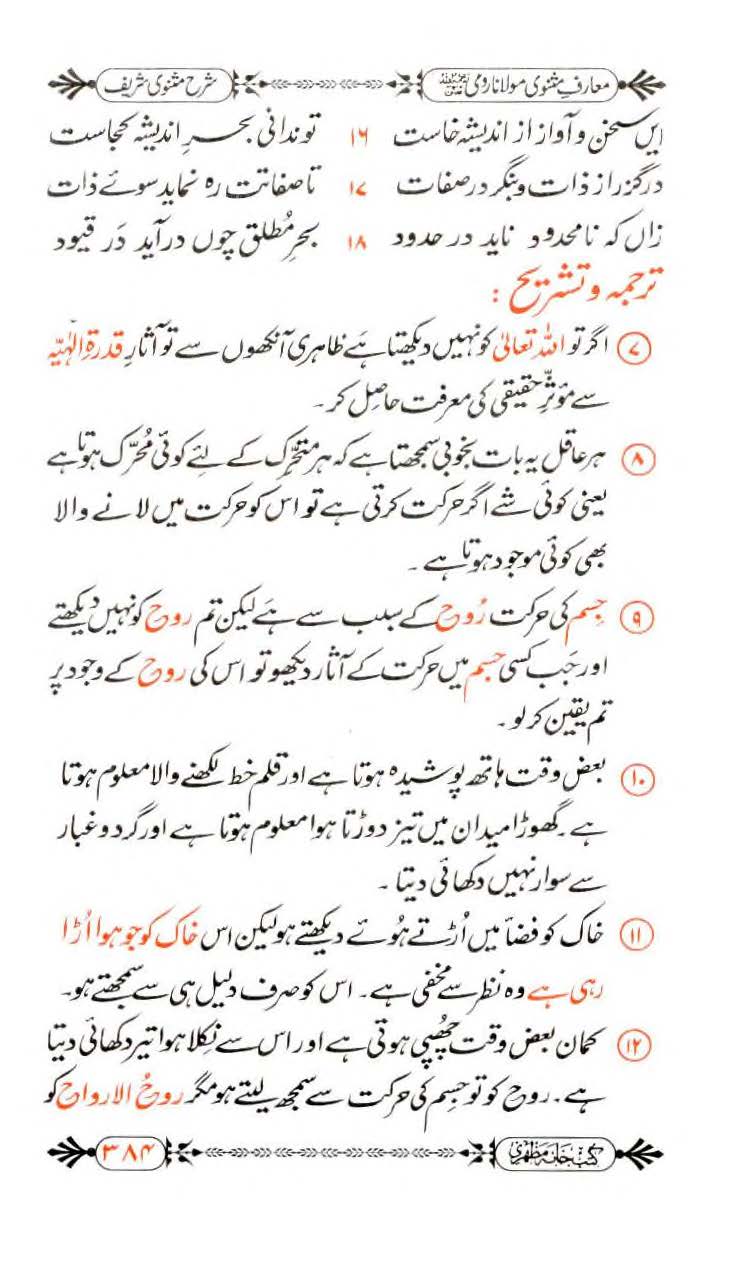 معارفِ مثنوی مولانا رومی شرح مثنوی شریف
ایں سخن و آواز از اندیشہ خاست ۱۶ تو ندانی بحرِ اندیشہ کجاست
درگزر از ذات و بنگر در صفات ۱۷ تا صفاتت رہ نماید سوئے ذات
زاں کہ نامحدود ناید در حدود ۱۸ بحرِ مُطلق چوں درآید دَر قیود
ترجمہ و تشریح :
۷ اگر تو اللہ تعالیٰ کو نہیں دیکھتا ہَے ظاہری آنکھوں سے تو آثارِ قدرۃِ الٰہیّہ
سے مؤثرِ حقیقی کی معرفت حاصِل کر۔
۸ ہر عاقل یہ بات بخوبی سمجھتا ہے کہ ہر متحرّک کے لئے کوئی مُحرّک ہوتا ہے
یعنی کوئی شے اگر حرکت کرتی ہے تو اس کو حرکت میں لانے والا
بھی کوئی موجود ہوتا ہے ۔
۹ جِسم کی حرکت رُوح کے سبب سے ہَے لیکن تم روح کو نہیں دیکھتے
اور جَب کسی جسم میں حرکت کے آثار دیکھو تو اس کی روح کے وجود پر
تم یقین کر لو ۔
۱۰ بعض وقت ہاتھ پوشیدہ ہوتا ہے اور قلم خط لکھنے والا معلوم ہوتا
ہے ۔ گھوڑا میدان میں تیز دوڑتا ہوا معلوم ہوتا ہے اور گرد و غبار
سے سوار نہیں دکھائی دیتا ۔
۱۱ خاک کو فضأ میں اُڑتے ہُوئے دیکھتے ہو لیکن اس خاک کو جو ہوا اُڑا
رہی ہے وہ نظر سے مخفی ہے ۔ اس کو صرف دلیل ہی سے سمجھتے ہو۔
۱۲ کمان بعض وقت چھُپی ہوتی ہے اور اس سے نِکلا ہوا تیر دکھائی دیتا
ہے ۔ روح کو تو جِسم کی حرکت سے سمجھ لیتے ہو مگر روحُ الارواح کو
کتب خانہ مظہری ۳۸۴